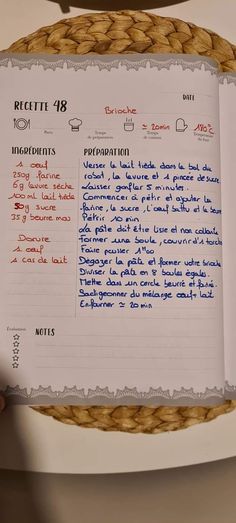 DATE
RECETTE 48
Brioche
≃ 20min
170°C
Parts
Temps de préparation
Temps de cuisson
INGRÉDIENTS
1 oeuf
250g farine
6g levure sèche
100ml lait tiède
50g sucre
35g beurre mou
Dorure
1 oeuf
1 cas de lait
PRÉPARATION
Verser le lait tiède dans le bol du
robot, la levure et 1 pincée de sucre
Laisser gonfler 5 minutes.
Commencer à pétrir et ajouter la
farine, le sucre, l'oeuf battu et le beurre
Pétrir 10 min
La pâte doit être lisse et non collante
Former une boule, couvrir d'1 torchon
Faire pousser 1h00
Dégazer la pâte et former votre brioche
Diviser la pâte en 8 boules égales.
Mettre dans un cercle beurré et fariné.
Badigeonner du mélange oeuf + lait
Enfourner ≃ 20 min
Évaluation
NOTES